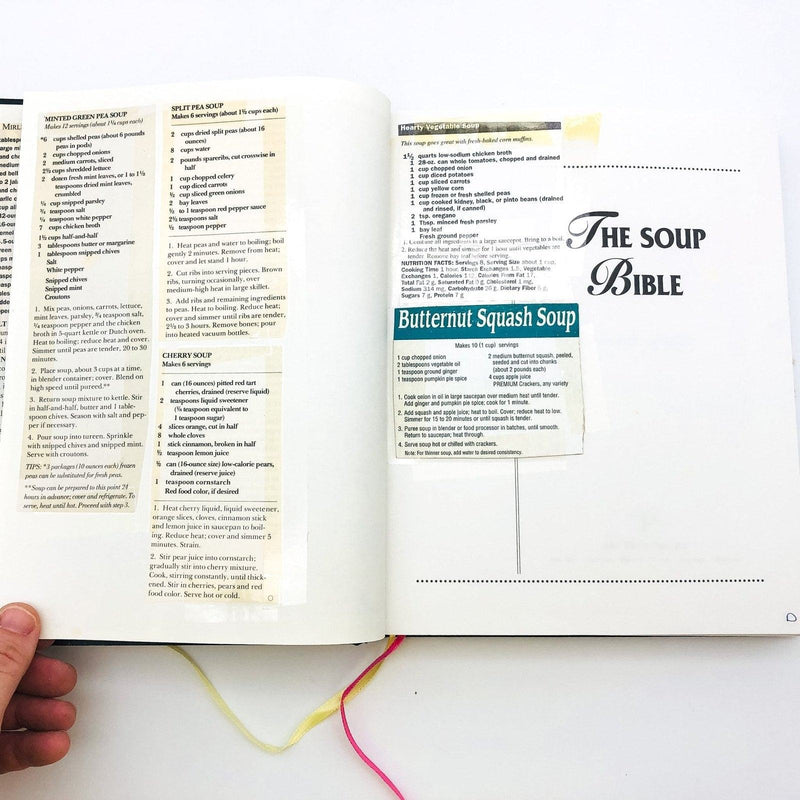 MINTED GREEN PEA SOUP
Makes 12 servings (about 1¼ cups each)
*6 cups shelled peas (about 6 pounds
peas in pods)
2 cups chopped onions
2 medium carrots, sliced
2⅔ cups shredded lettuce
2 dozen fresh mint leaves, or 1 to 1½
teaspoons dried mint leaves,
crumbled
¼ cup snipped parsley
¾ teaspoon salt
¼ teaspoon white pepper
7 cups chicken broth
1½ cups half-and-half
3 tablespoons butter or margarine
1 tablespoon snipped chives
Salt
White pepper
Snipped chives
Snipped mint
Croutons
1. Mix peas, onions, carrots, lettuce,
mint leaves, parsley, ¾ teaspoon salt,
¼ teaspoon pepper and the chicken
broth in 5-quart kettle or Dutch oven.
Heat to boiling; reduce heat and cover.
Simmer until peas are tender, 20 to 30
minutes.
2. Place soup, about 3 cups at a time,
in blender container; cover. Blend on
high speed until pureed.**
3. Return soup mixture to kettle. Stir
in half-and-half, butter and 1 table-
spoon chives. Season with salt and pep-
per if necessary.
4. Pour soup into tureen. Sprinkle
with snipped chives and snipped mint.
Serve with croutons.
TIPS: *3 packages (10 ounces each) frozen
peas can be substituted for fresh peas.
**Soup can be prepared to this point 24
hours in advance; cover and refrigerate. To
serve, heat until hot. Proceed with step 3.
SPLIT PEA SOUP
Makes 6 servings (about 1½ cups each)
2 cups dried split peas (about 16
ounces)
8 cups water
2 pounds spareribs, cut crosswise in
half
1 cup chopped celery
1 cup diced carrots
½ cup sliced green onions
2 bay leaves
½ to 1 teaspoon red pepper sauce
2½ teaspoons salt
½ teaspoon pepper
1. Heat peas and water to boiling; boil
gently 2 minutes. Remove from heat;
cover and let stand 1 hour.
2. Cut ribs into serving pieces. Brown
ribs, turning occasionally, over
medium-high heat in large skillet.
3. Add ribs and remaining ingredients
to peas. Heat to boiling. Reduce heat;
cover and simmer until ribs are tender,
2½ to 3 hours. Remove bones; pour
into heated vacuum bottles.
CHERRY SOUP
Makes 6 servings
1 can (16 ounces) pitted red tart
cherries, drained (reserve liquid)
2 teaspoons liquid sweetener
(⅛ teaspoon equivalent to
1 teaspoon sugar)
4 slices orange, cut in half
8 whole cloves
1 stick cinnamon, broken in half
½ teaspoon lemon juice
½ can (16-ounce size) low-calorie pears,
drained (reserve juice)
1 teaspoon cornstarch
Red food color, if desired
1. Heat cherry liquid, liquid sweetener,
orange slices, cloves, cinnamon stick
and lemon juice in saucepan to boil-
ing. Reduce heat; cover and simmer 5
minutes. Strain.
2. Stir pear juice into cornstarch;
gradually stir into cherry mixture.
Cook, stirring constantly, until thick-
ened. Stir in cherries, pears and red
food color. Serve hot or cold.
Hearty Vegetable Soup
This soup goes great with fresh-baked corn muffins.
1½ quarts low-sodium chicken broth
1 28-oz. can whole tomatoes, chopped and drained
1 cup chopped onion
1 cup diced potatoes
1 cup sliced carrots
1 cup yellow corn
1 cup frozen or fresh shelled peas
1 cup cooked kidney, black, or pinto beans (drained
and rinsed, if canned)
2 tsp. oregano
1 Tbsp. minced fresh parsley
1 bay leaf
Fresh ground pepper
1. Combine all ingredients in a large saucepot. Bring to a boil.
2. Reduce the heat and simmer for 1 hour until vegetables are
tender. Remove bay leaf before serving.
NUTRITION FACTS: Servings 8, Serving Size about 1 cup,
Cooking Time 1 hour, Starch Exchanges 1.5, Vegetable
Exchanges 1, Calories Calories From Fat 17,
Total Fat 2 g, Saturated Fat Cholesterol 1 mg,
Sodium 314 mg, Carbohydrate Dietary Fiber
Sugars 7 g, Protein 7 g
THE SOUP
BIBLE
Butternut Squash Soup
Makes 10 (1 cup) servings
1 cup chopped onion
2 tablespoons vegetable oil
1 teaspoon ground ginger
1 teaspoon pumpkin pie spice
2 medium butternut squash, peeled,
seeded and cut into chunks
(about 2 pounds each)
4 cups apple juice
PREMIUM Crackers, any variety
1. Cook onion in oil in large saucepan over medium heat until tender.
Add ginger and pumpkin pie spice; cook for 1 minute.
2. Add squash and apple juice; heat to boil. Cover; reduce heat to low.
Simmer for 15 to 20 minutes or until squash is tender.
3. Puree soup in blender or food processor in batches, until smooth.
Return to saucepan; heat through.
4. Serve soup hot or chilled with crackers.
Note: For thinner soup, add water to desired consistency.